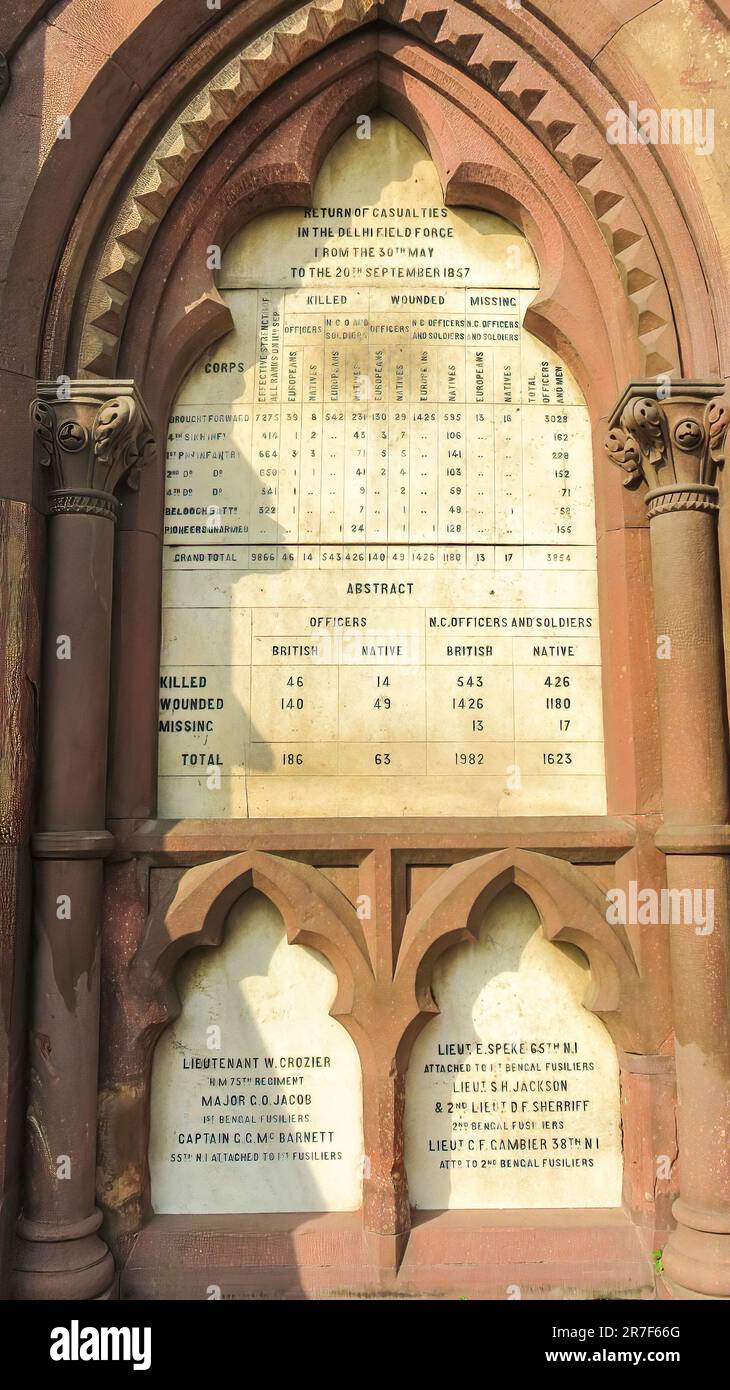 RETURN OF CASUALTIES
IN THE DELHI FIELD FORCE
FROM THE 30TH MAY
TO THE 20TH SEPTEMBER 1857
CORPS
EFFECTIVE STRENGTH OF ALL RANKS ON SEP
KILLED WOUNDED MISSING
OFFICERS N.C.O AND SOLDIERS OFFICERS N.C OFFICERS AND SOLDIERS N.C. OFFICERS AND SOLDIERS
EUROPEANS NATIVES EUROPEANS NATIVES EUROPEANS NATIVES EUROPEANS NATIVES EUROPEANS NATIVES
TOTAL OFFICERS AND MEN
BROUGHT FORWARD 7275 39 8 542 231 130 29 1425 595 13 16 3028
4TH SIKH INF! 414 1 2 .. 43 3 7 .. 106 .. .. 162
1ST PNJ INFANTRY 664 3 3 .. 71 5 5 .. 141 .. .. 228
2ND DO DO 650 1 1 .. 41 2 4 .. 103 .. .. 152
4TH DO DO 541 1 .. .. 9 .. 2 .. 59 .. .. 71
BELOOCH BATTN 322 1 .. .. 7 .. 1 .. 48 .. 1 58
PIONEERS UNARMED .. .. .. 1 24 .. 1 1 128 .. .. 155
GRAND TOTAL 9866 46 14 543 426 140 49 1426 1180 13 17 3854
ABSTRACT
OFFICERS N.C. OFFICERS AND SOLDIERS
BRITISH NATIVE BRITISH NATIVE
KILLED 46 14 543 426
WOUNDED 140 49 1426 1180
MISSING .. .. 13 17
TOTAL 186 63 1982 1623
LIEUTENANT W. CROZIER
H M 75TH REGIMENT
MAJOR G.O. JACOB
1ST BENGAL FUSILIERS
CAPTAIN G.G. MC BARNETT
55TH N.I ATTACHED TO 1ST FUSILIERS
LIEUT. E. SPEKE 65TH N.I
ATTACHED TO 1ST BENGAL FUSILIERS
LIEUT S.H. JACKSON
& 2ND LIEUT D.F. SHERRIFF
2ND BENGAL FUSILIERS
LIEUT C.F. GAMBIER 38TH N I
ATTD TO 2ND BENGAL FUSILIERS
alamy
alamy
Image ID: 2R7F66G
www.alamy.com